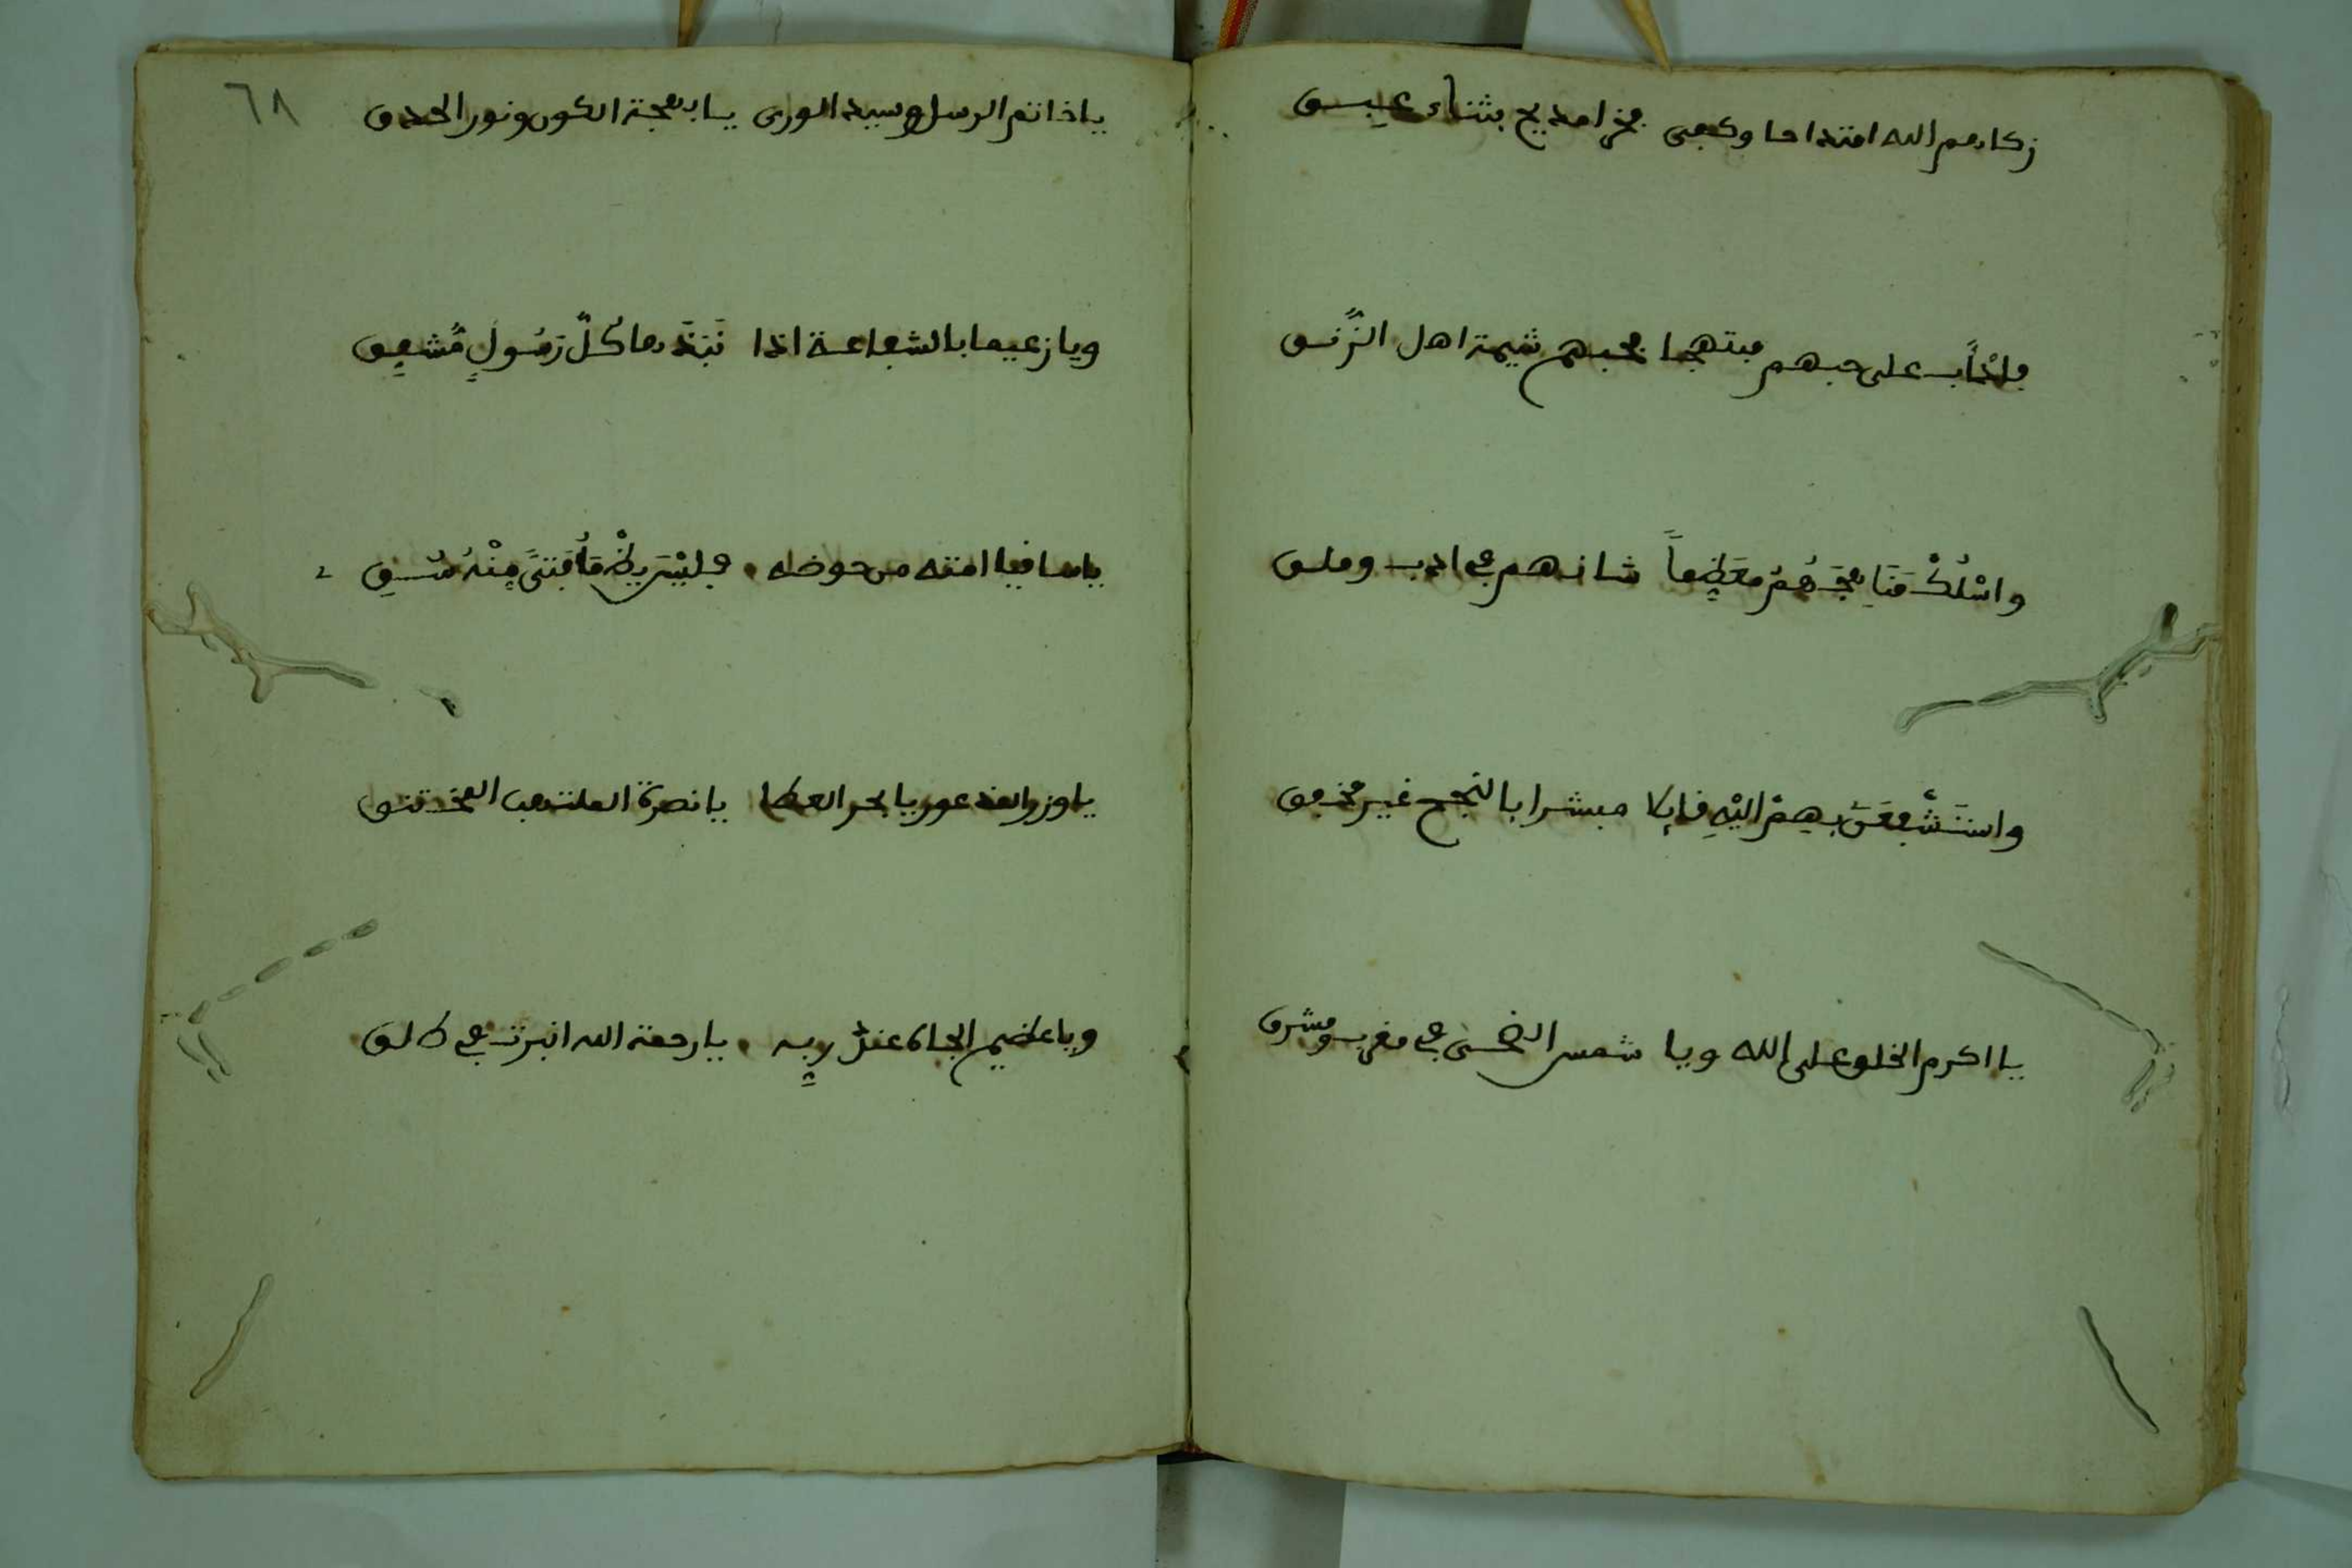 زكاهم الله امتداحا وكفى فخرا مديح بثناء عبق
فاذأب على حبهم مبتهجا فحبهم شيمة اهل
واسْلُكْ مَنَاهِجَهُمُ مُعَظِّماً شانهم في ادب وملق
واسْتَشْفِعَنْ بِهِمْ إليْهِ قائلا مبشرا بالنجح غير مخفق
يا اكرم الخلق على الله ويا شمس الضحى في مغرب ومشرق
٦٨
يا خاتم الرسل وسيد الورى يا بهجة الكون ونور الحدق
ويا زعيما بالشفاعة اذا نَبَذَها كلُّ رَسُولٍ مُّشفِق
يا ساقيا امته من حوضه
يا وزر المذعور يا بحر العطا يا نصرة الملتهب المختنق
ويا عظيم الجاه عند ربه يا رحمة الله انبرت في طلق